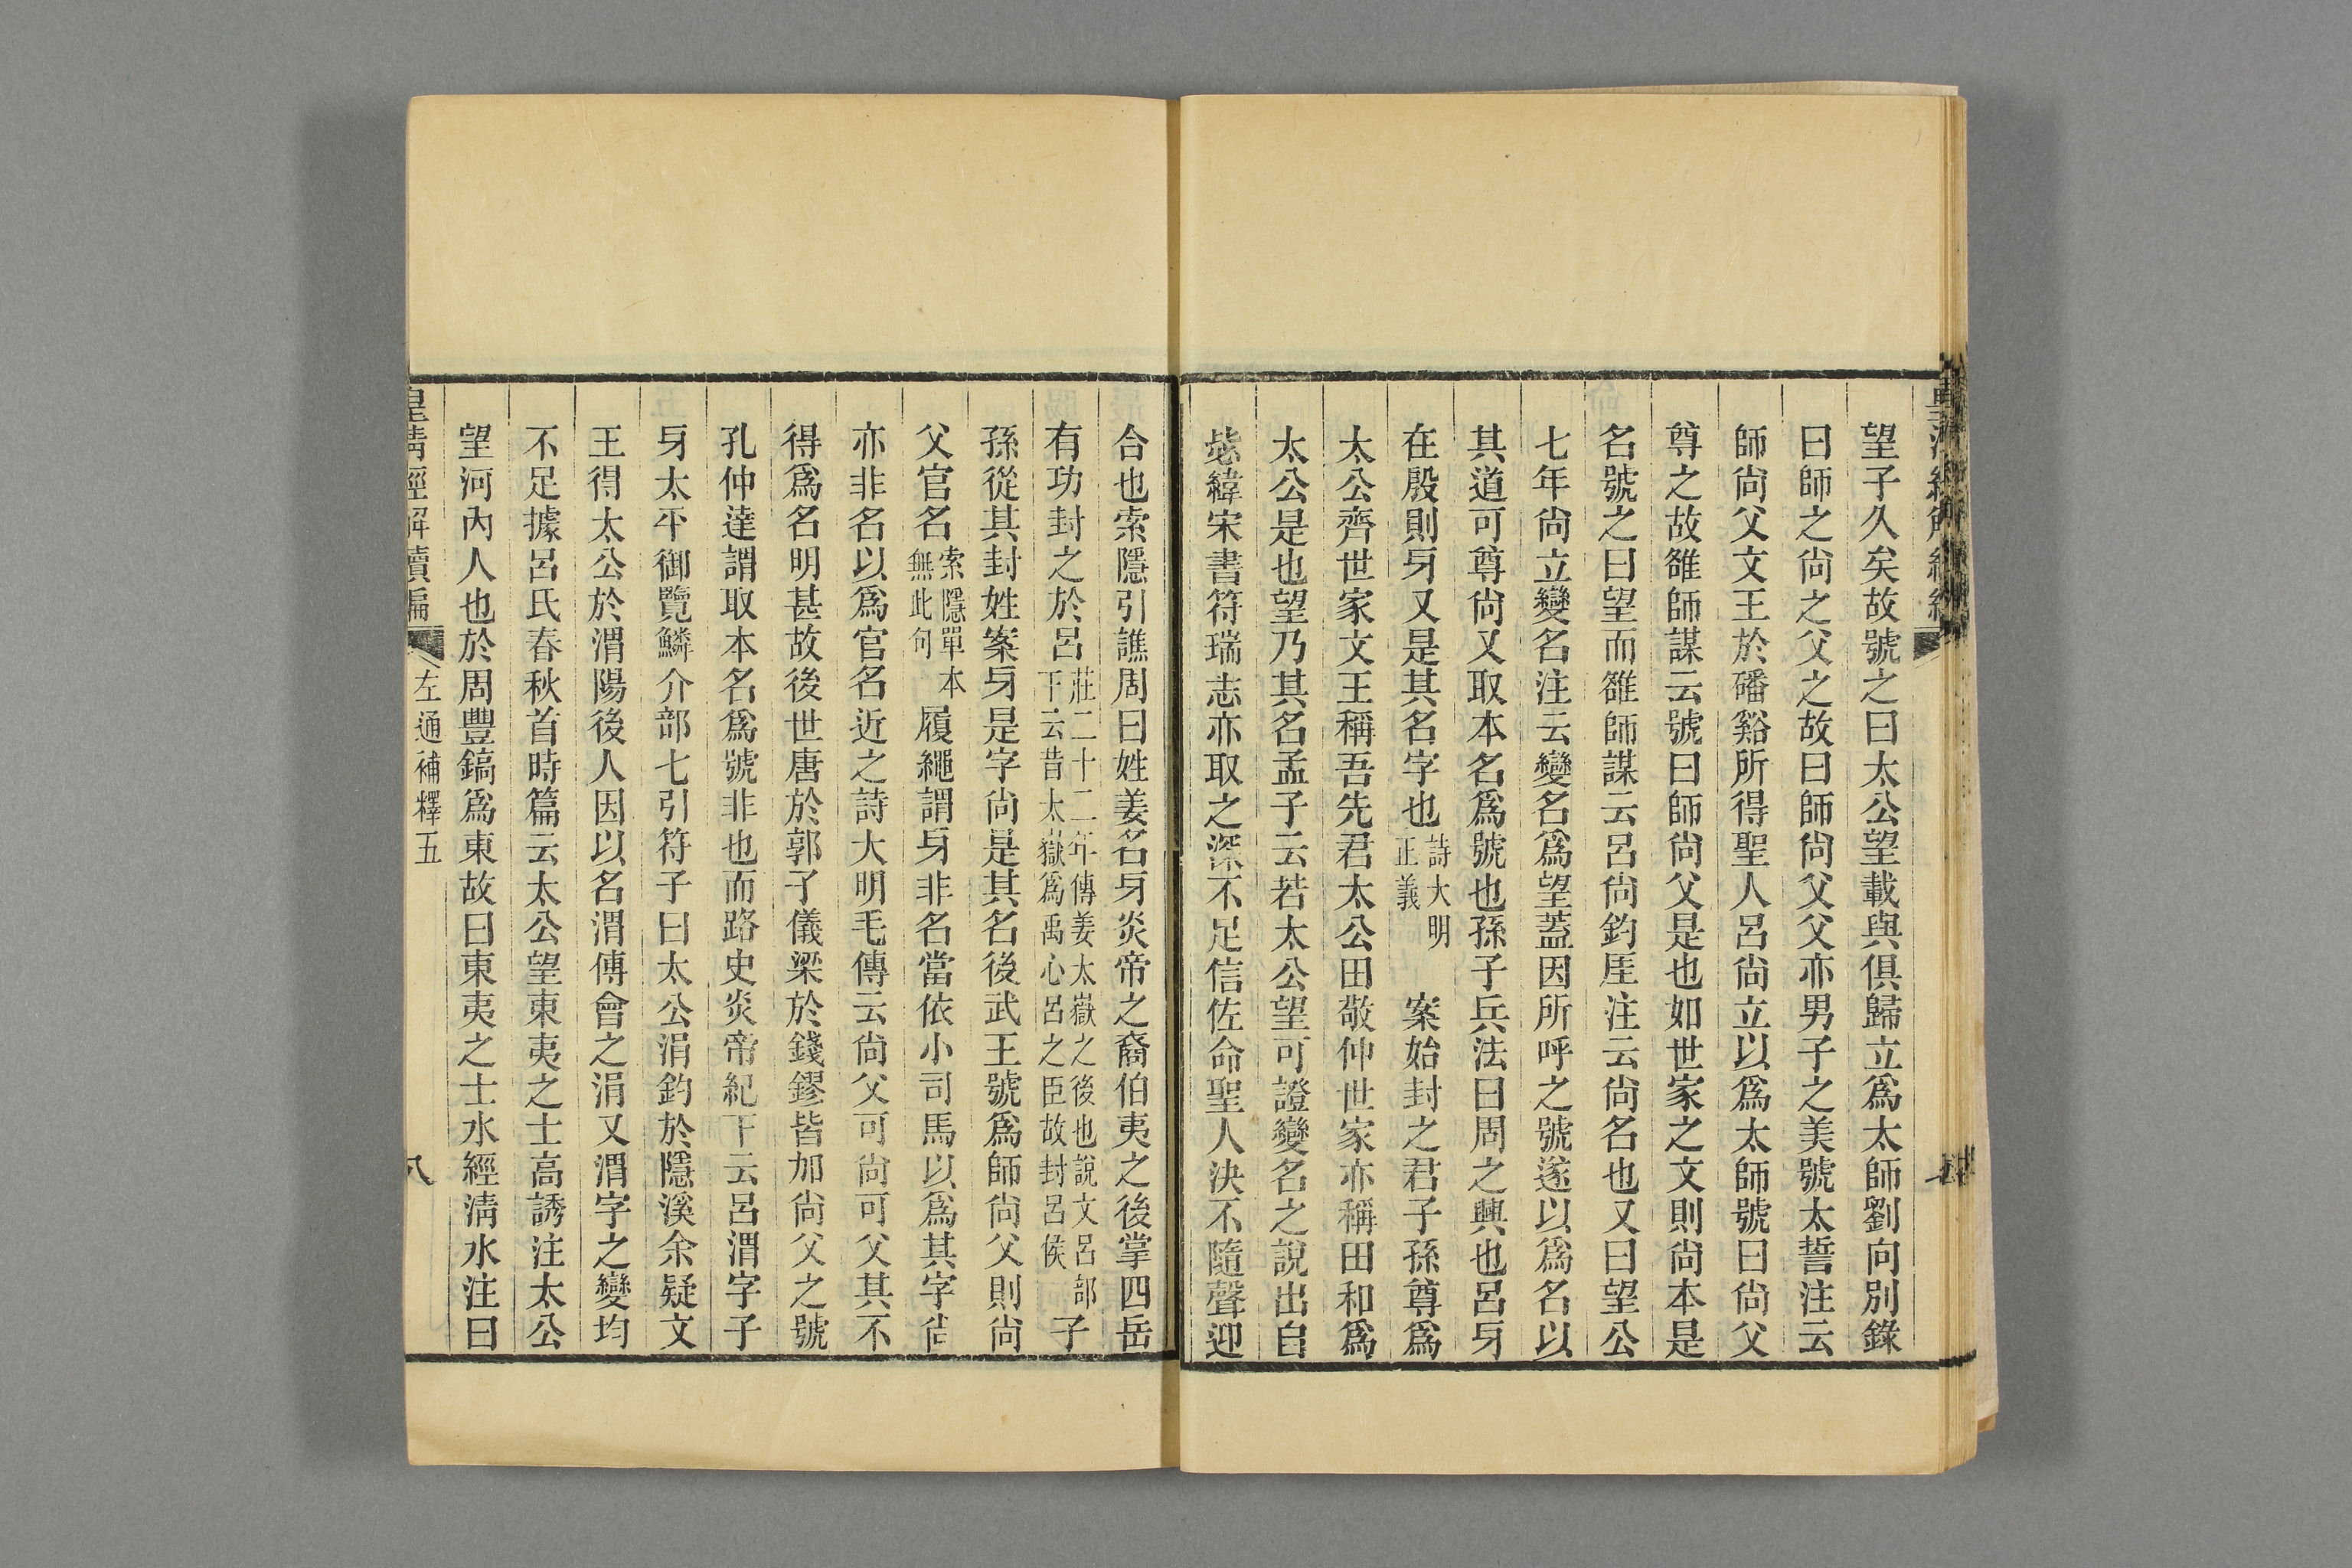 望子久矣故號之曰太公望載與俱歸立爲太師劉向別錄
曰師之尙之父之故曰師尙父父亦男子之美號太誓注云
師尙父文王於磻谿所得聖人呂尙立以爲太師號曰尙父
尊之故雒師謀云號曰師尙父是也如世家之文則尙本是
名號之曰望而雒師謀云呂尙釣厓注云尙名也又曰望公
七年尙立變名注云變名爲望蓋因所呼之號遂以爲名以
其道可尊尙又取本名爲號也孫子兵法曰周之興也呂牙
在殷則牙又是其名字也詩大明正義案始封之君子孫尊爲
太公齊世家文王稱吾先君太公田敬仲世家亦稱田和爲
太公是也望乃其名孟子云若太公望可證變名之說出自
毖緯宋書符瑞志亦取之深不足信佐命聖人決不隨聲迎
合也索隱引譙周曰姓姜名牙炎帝之裔伯夷之後掌四岳
有功封之於呂莊二十二年傳姜太嶽之後也說文呂部下云昔太嶽爲禹心呂之臣故封呂侯子
孫從其封姓案牙是字尙是其名後武王號爲師尙父則尙
父官名索隱單本無此句履繩謂牙非名當依小司馬以爲其字尙
亦非名以爲官名近之詩大明毛傳云尙父可尙可父其不
得爲名明甚故後世唐於郭子儀梁於錢鏐皆加尙父之號
孔仲達謂取本名爲號非也而路史炎帝紀下云呂渭字子
牙太平御覽鱗介部七引符子曰太公涓釣於隱溪余疑文
王得太公於渭陽後人因以名渭傅會之涓又渭字之變均
不足據呂氏春秋首時篇云太公望東夷之士高誘注太公
望河內人也於周豐鎬爲東故曰東夷之士水經淸水注曰
皇清經解續編 左通補釋五 八